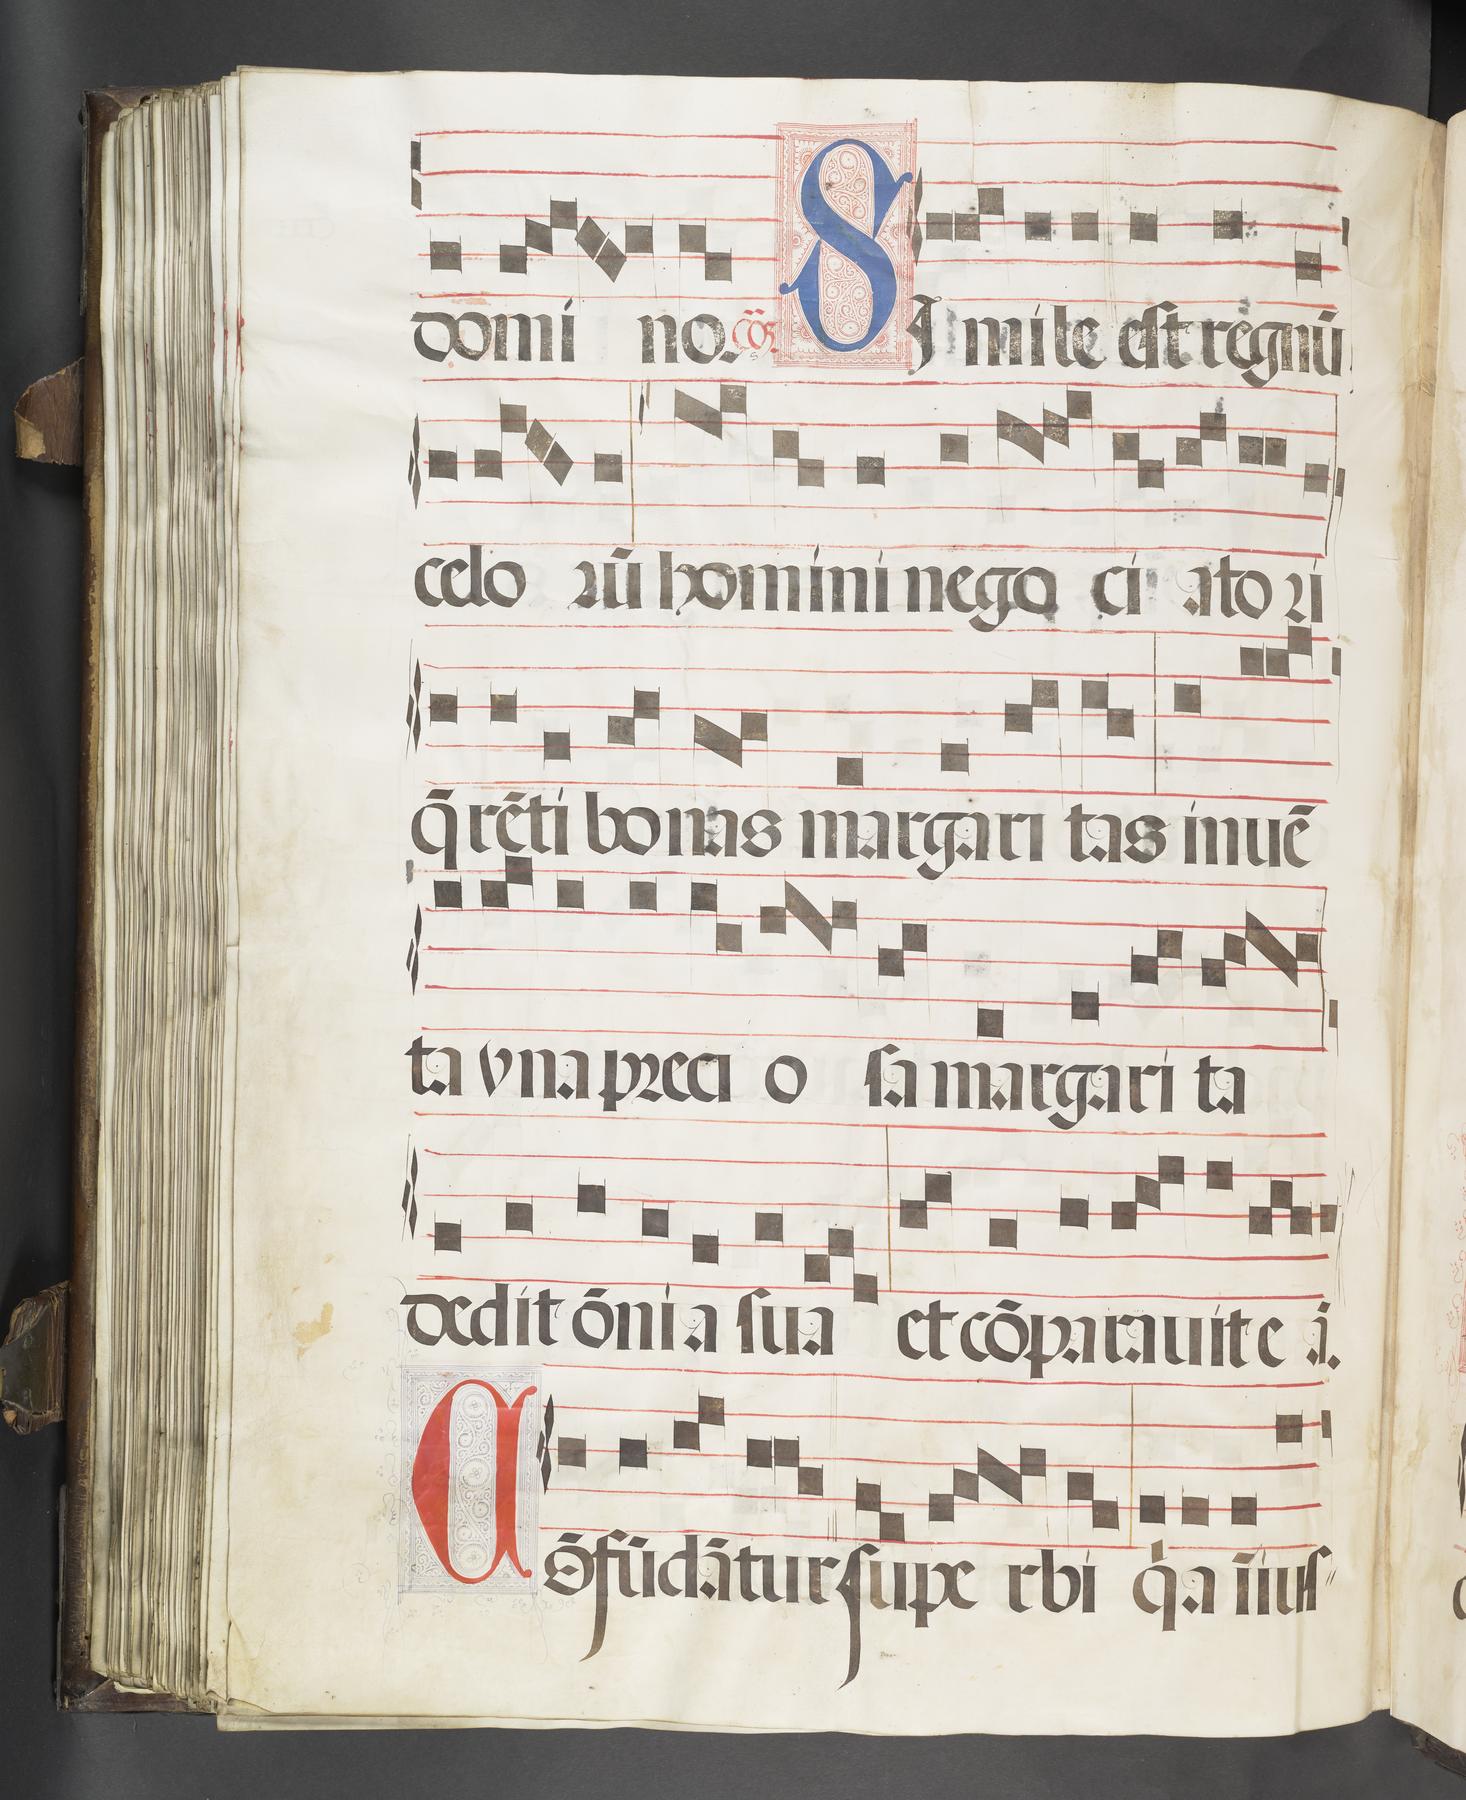 domi no. cōː SImile est regnū
celo rū homini nego ci ato ri
q̄rēti bonas margari tas inuē
ta vna preci o sa margari ta
dedit ōnia sua et cōparauit e ā.
Cōfūdātur supe rbi q̇a iius